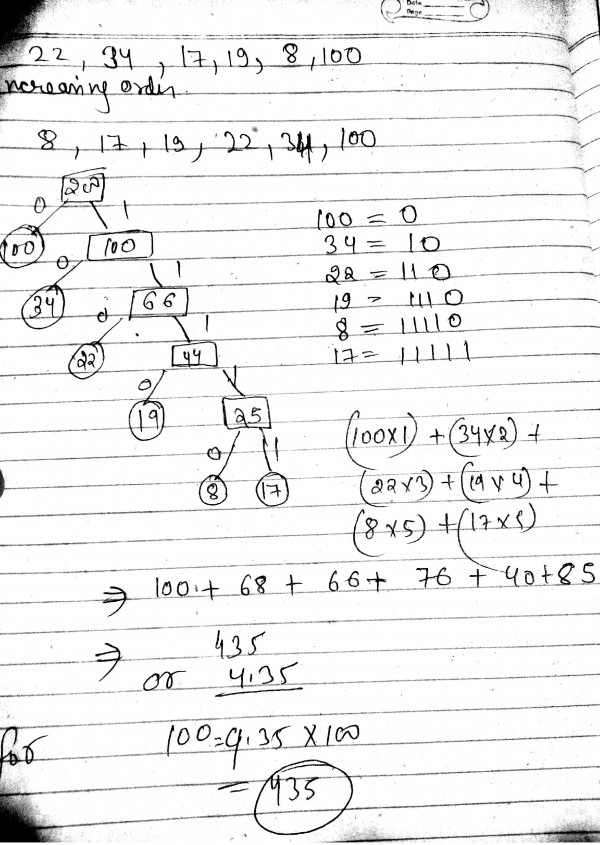 Date
Page
22, 34, 17, 19, 8, 100
ncreasing order
8, 17, 19, 22, 34, 100
200
0 1
100 100
0 1
34 66
0 1
22 44
0 1
19 25
0 1
8 17
100 = 0
34 = 10
22 = 110
19 = 1110
8 = 11110
17 = 11111
(100×1) + (34×2) +
(22×3) + (19×4) +
(8×5) + (17×5)
⇒ 100 + 68 + 66 + 76 + 40 + 85
⇒ 435
or 4.35
for 100 = 4.35 × 100
= 435